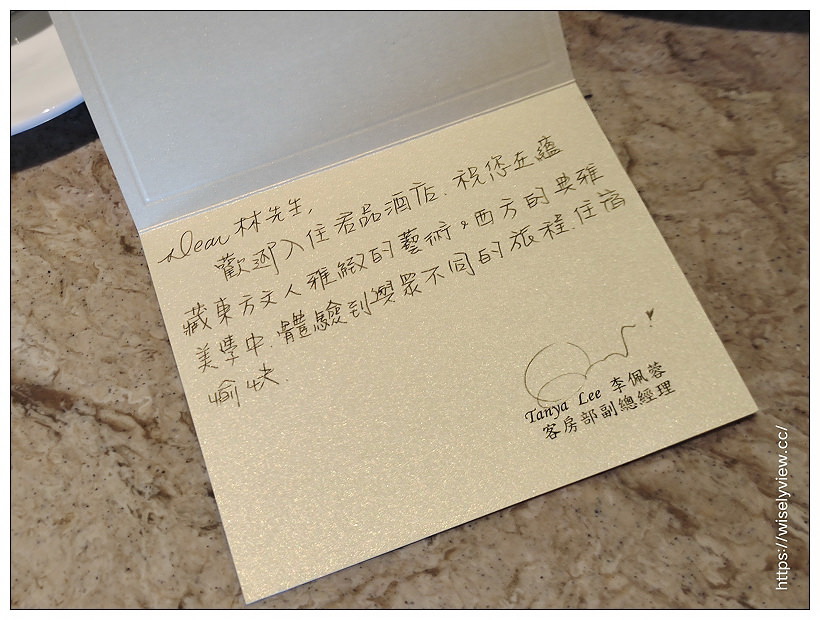 Dear 林先生,
歡迎入住君品酒店. 祝您在蘊
藏東方文人雅緻的藝術,西方的典雅
美學中.體驗到與眾不同的旅程.住宿
愉快.
Tanya Lee 李佩蓉
客房部副總經理
https://wiselyview.cc/